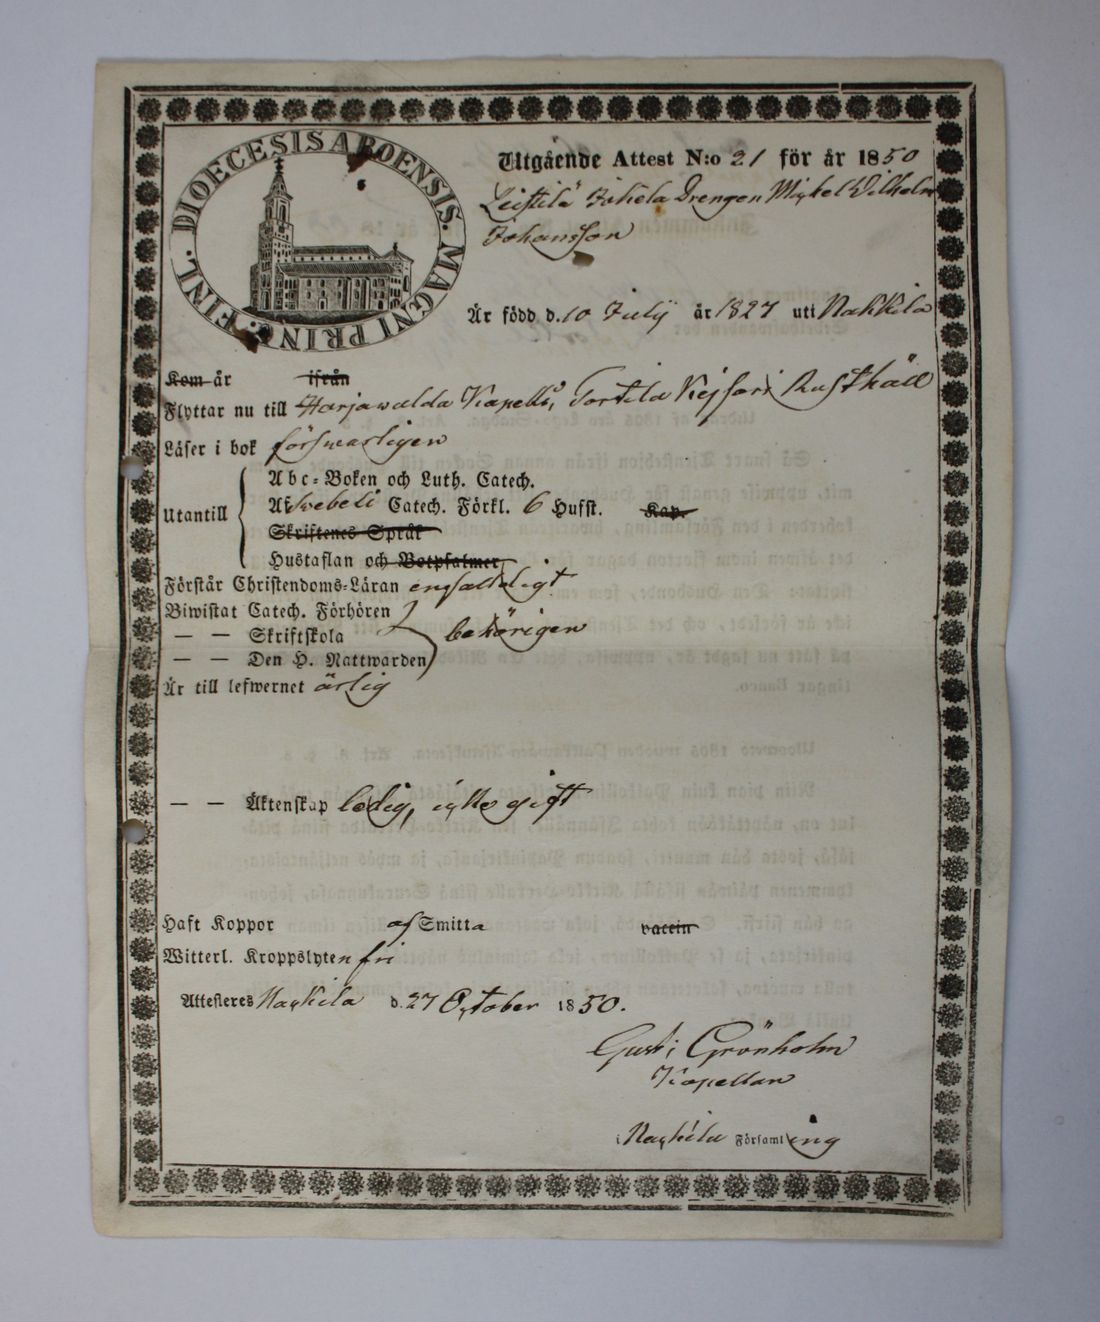 DIOECESIS ABOENSIS. MAGNI PRINC. FINL.
Utgående Attest N:o 21 för år 1850
Leistilä Jskela Drengen Mickel Wilhelm
Johansson
Är född d. 10 July år 1827 uti Nakkila
Kom år ifrån
Flyttar nu till Harjawalda Kapells, Torttila Kejsari Rusthåll
Läser i bok förswarligen
Abc-Boken och Luth. Catech.
Utantill Af Swebelii Catech. Förkl. 6 Hufst. Kap.
Skriftenes Språk
Hustaflan och Botpsalmer
Förstår Christendoms-Läran enfaldeligt
Biwistat Catech. Förhören
— — Skriftskola behörigen
— — Den H. Nattwarden
Är till lefwernet ärlig
— — Äktenskap ledig, icke gift
Haft Koppor af Smitta vaccin
Witterl. Kroppslyten fri
Attesteres Nackila d. 27 October 1850.
Gust: Grönholm
Kapellan
i Nackila Församling